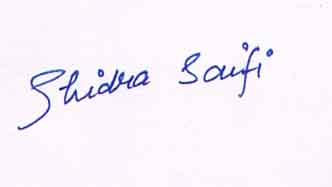 Shidra Saifi